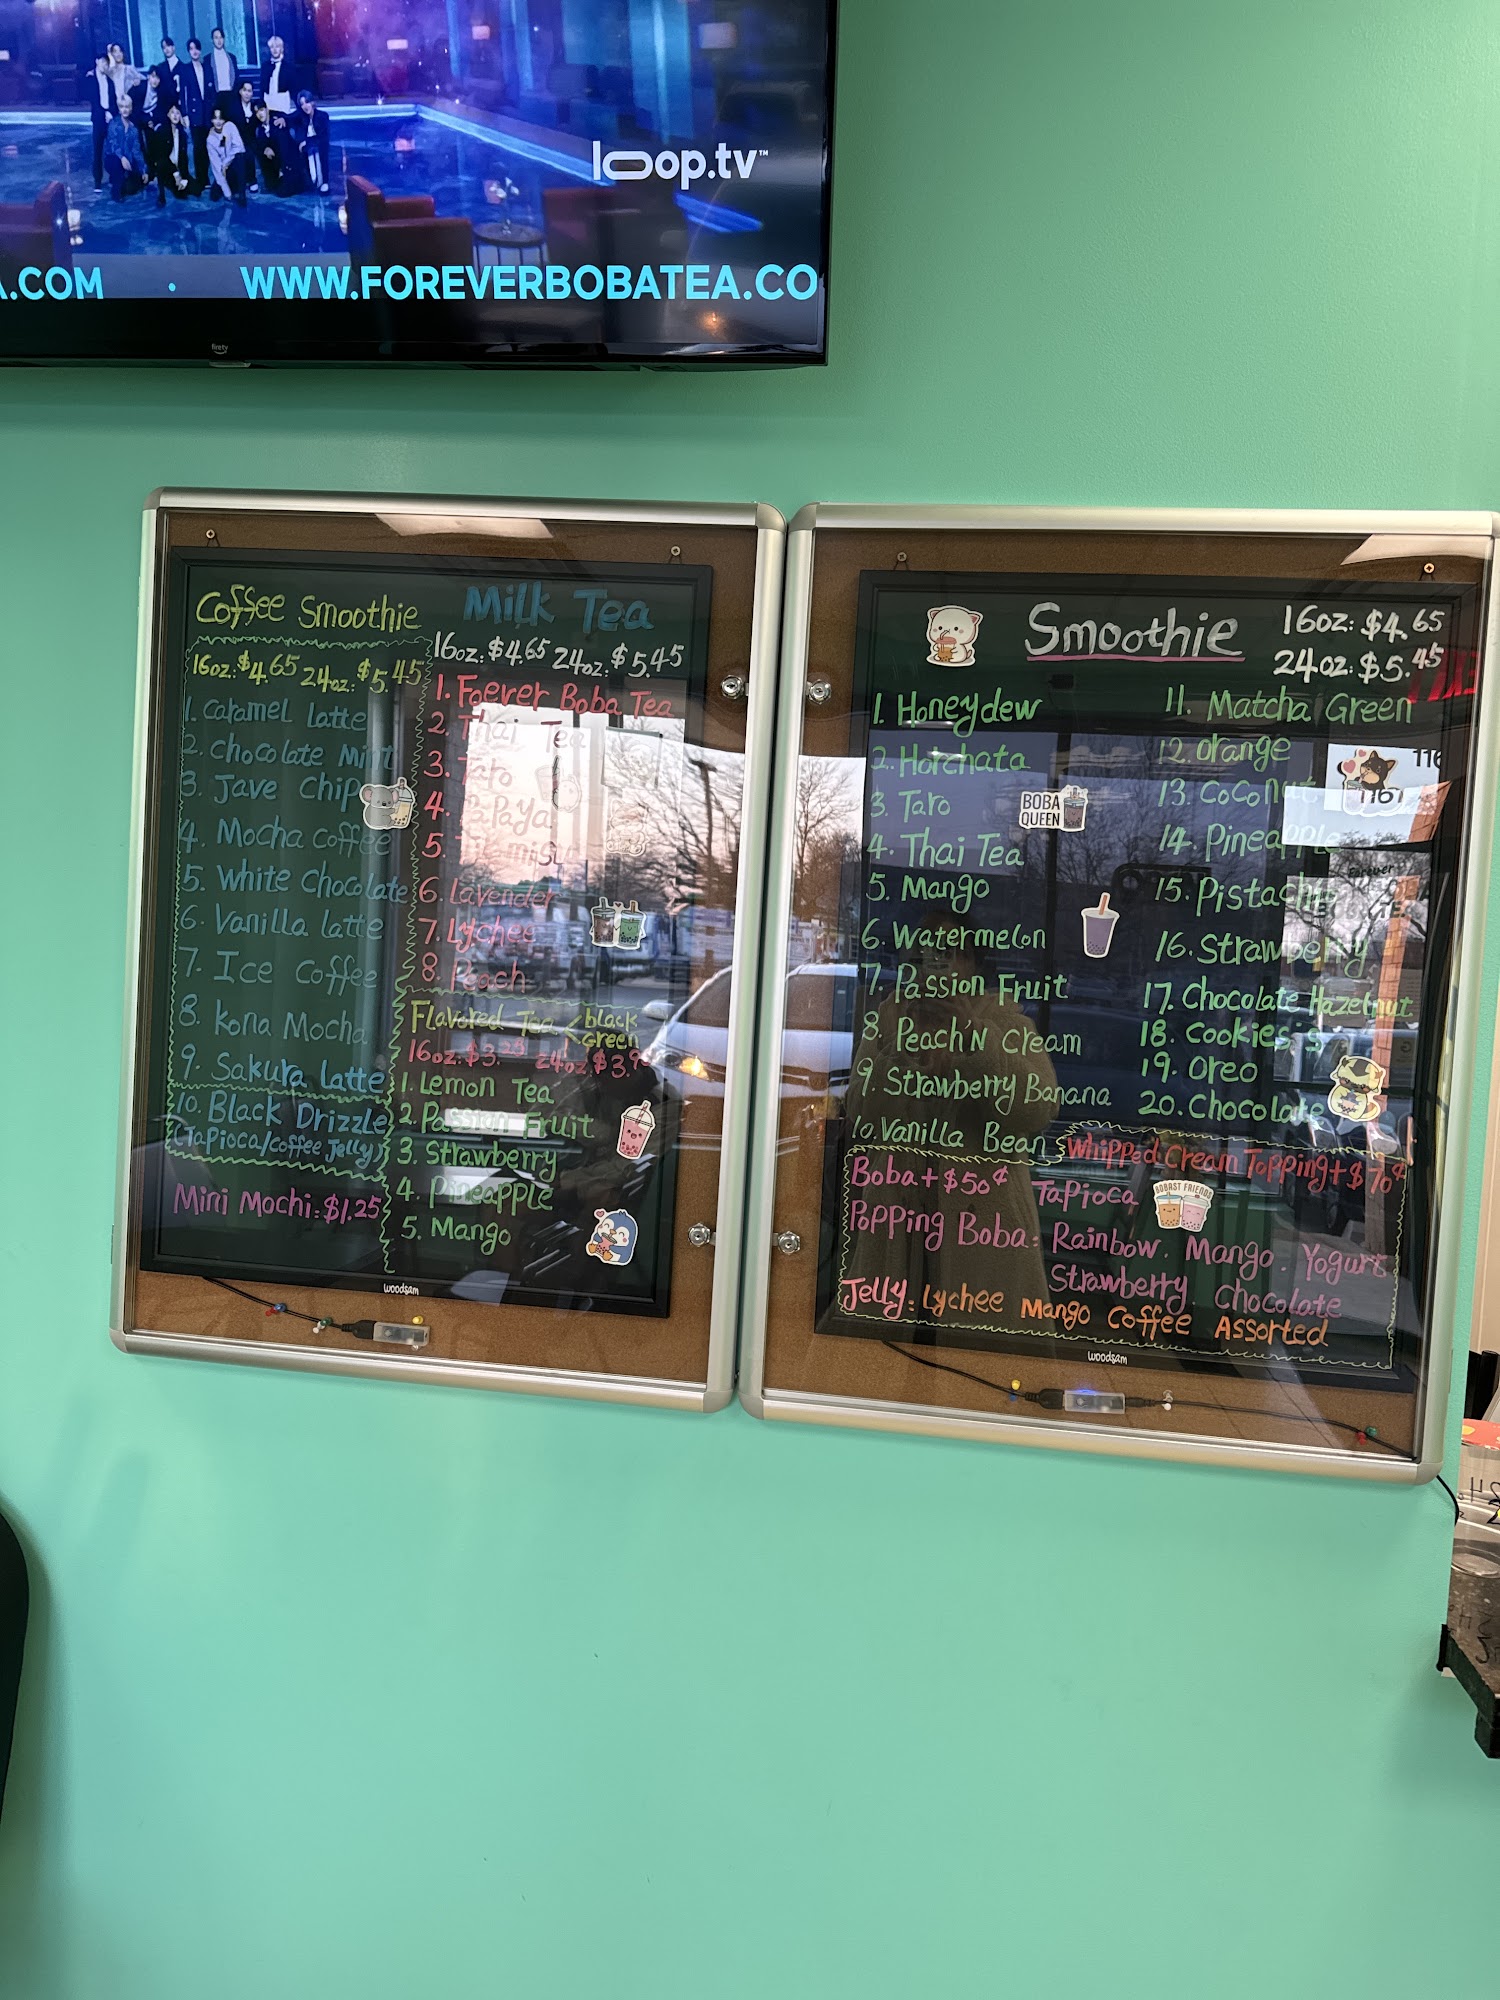 loop.tv™
A.COM • WWW.FOREVERBOBATEA.CO
firetv
Coffee Smoothie
16oz: $4.65 24oz: $5.45
1. Caramel Latte
2. Chocolate Mint
3. Jave Chip
4. Mocha Coffee
5. White Chocolate
6. Vanilla Latte
7. Ice Coffee
8. Kona Mocha
9. Sakura Latte
10. Black Drizzle
(Tapioca/Coffee Jelly)
Mini Mochi: $1.25
Milk Tea
16oz: $4.65 24oz: $5.45
1. Foever Boba Tea
2. Thai Tea
3. Taro
4. Papaya
5. Tiramisu
6. Lavender
7. Lychee
8. Peach
Flavored Tea < black
Green
16oz: $3. 24oz $3.9
1. Lemon Tea
2. Passion Fruit
3. Strawberry
4. Pineapple
5. Mango
woodsam
Smoothie
16oz: $4.65
24oz: $5.45
1. Honeydew
2. Horchata
3. Taro
4. Thai Tea
5. Mango
6. Watermelon
7. Passion Fruit
8. Peach'N Cream
9. Strawberry Banana
10. Vanilla Bean
11. Matcha Green
12. Orange
13. Coconut
14. Pineapple
15. Pistachio
16. Strawberry
17. Chocolate Hazelnut
18. Cookies
19. Oreo
20. Chocolate
BOBA
QUEEN
Whipped Cream Topping + $70¢
Boba + $50¢ Tapioca
BOBAST FRIENDS
Popping Boba: Rainbow. Mango. Yogurt
Strawberry. Chocolate
Jelly: Lychee Mango Coffee Assorted
woodsam